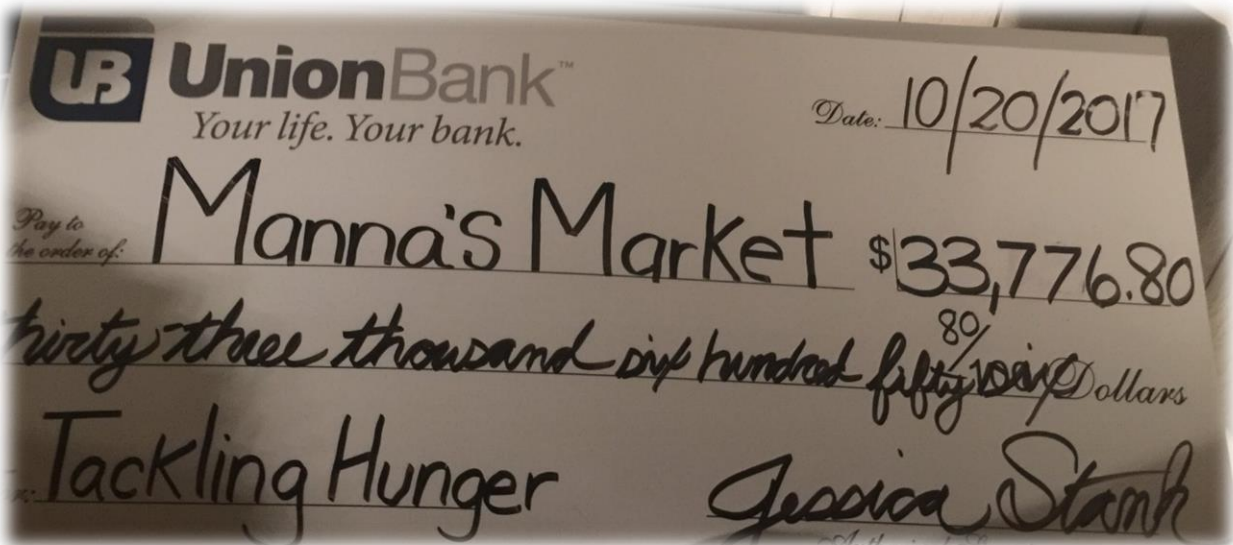 UB UnionBank™
Your life. Your bank.
Date: 10/20/2017
Pay to
the order of: Manna's Market $33,776.80
thirty three thousand six hundred fifty six 80/ Dollars
Tackling Hunger
Jessica Stark